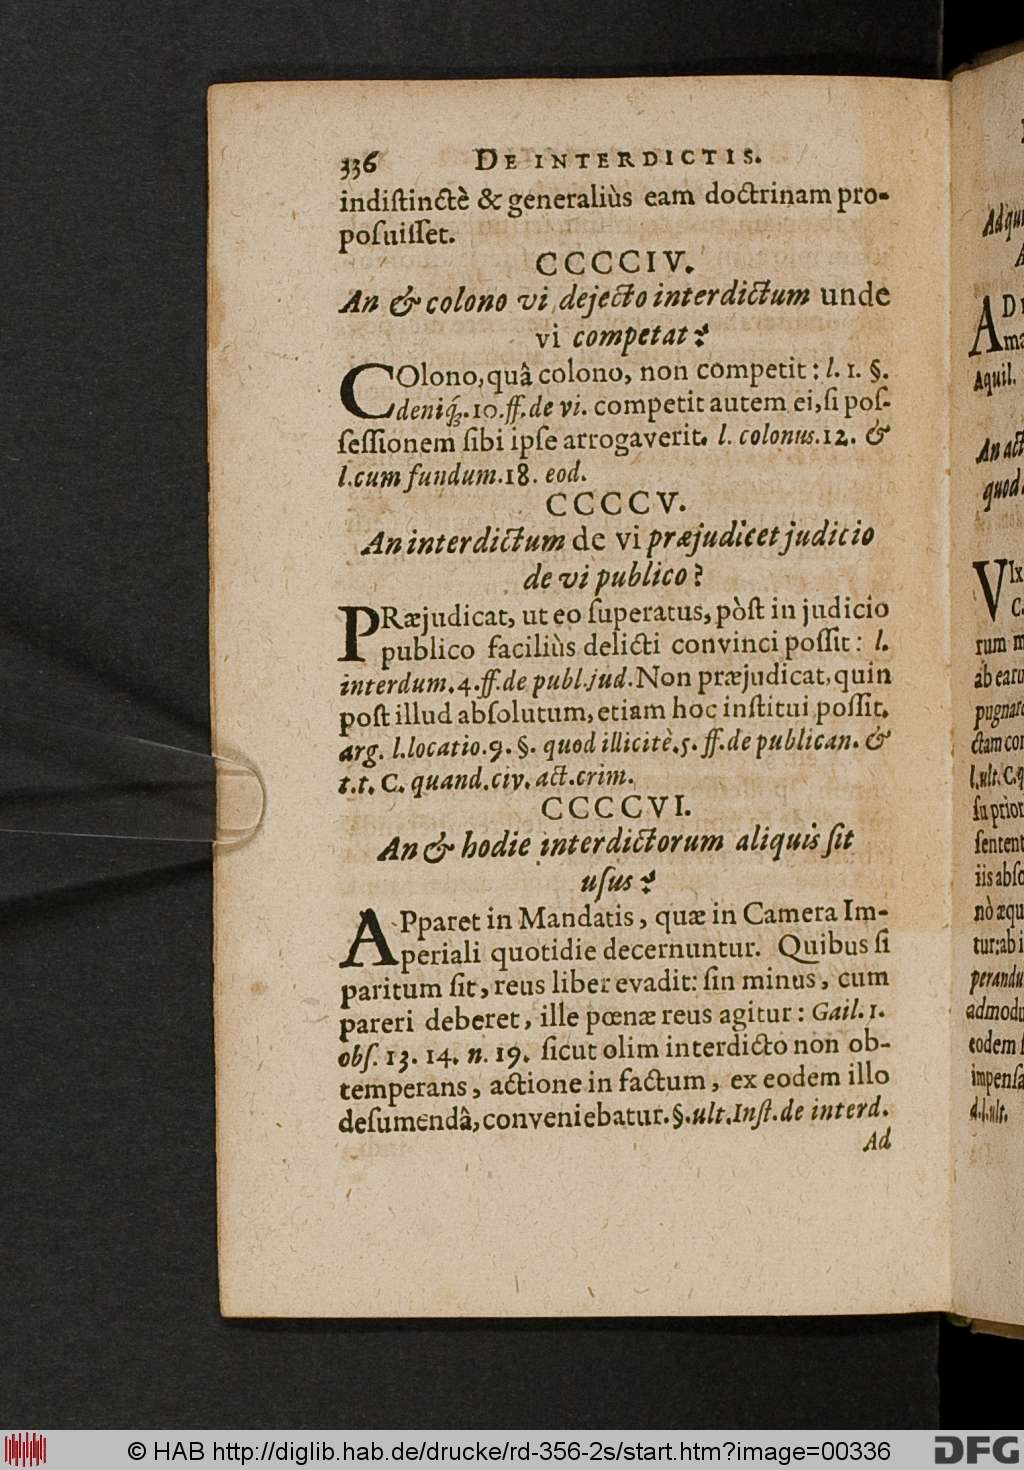 336 DE INTERDICTIS.
indiſtinctè & generaliùs eam doctrinam pro-
poſuiſſet.
CCCCIV.
An & colono vi dejecto interdictum unde
vi competat?
COlono, quâ colono, non competit: l. 1. §.
deniq́ꝫ. 10. ff. de vi. competit autem ei, ſi poſ-
ſeſſionem ſibi ipſe arrogaverit. l. colonus. 12. &
l. cum fundum. 18. eod.
CCCCV.
An interdictum de vi præjudicet judicio
de vi publico?
PRæjudicat, ut eo ſuperatus, pòſt in judicio
publico faciliùs delicti convinci poſſit: l.
interdum. 4. ff. de publ. jud. Non præjudicat, quin
poſt illud abſolutum, etiam hoc inſtitui poſſit.
arg. l. locatio. 9. §. quod illicitè. 5. ff. de publican. &
t. t. C. quand. civ. act. crim.
CCCCVI.
An & hodie interdictorum aliquis ſit
uſus?
APparet in Mandatis, quæ in Camera Im-
periali quotidie decernuntur. Quibus ſi
paritum ſit, reus liber evadit: ſin minus, cum
pareri deberet, ille pœnæ reus agitur: Gail. 1.
obſ. 13. 14. n. 19. ſicut olim interdicto non ob-
temperans, actione in factum, ex eodem illo
deſumendâ, conveniebatur. §. ult. Inſt. de interd.
Ad
Aquil.
An act
quod
rum m
ab earu
pugnare
ctam con
l. ult. C. q
ſu prior
ſentent
iis abſo
nò æqu
tur: ab i
perandu
admodu
eodem ſ
impenſa
d. l. ult.
© HAB http://diglib.hab.de/drucke/rd-356-2s/start.htm?image=00336
DFG